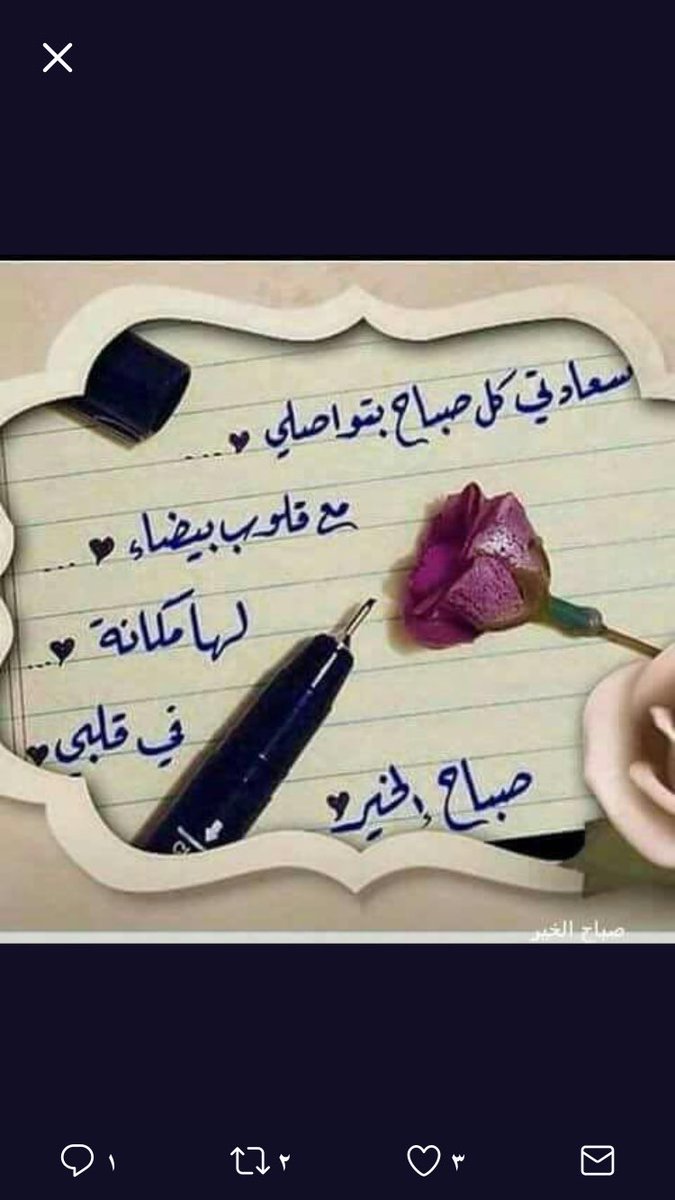 سعادتي كل صباح بتواصلي ♥...
مع قلوب بيضاء ♥...
لها مكانة ♥...
في قلبي ♥
صباح إلخير ♥
صباح الخير
١ ٢ ٣